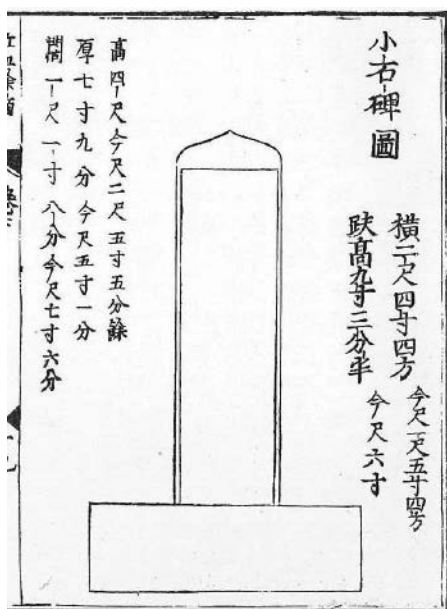 小石碑圖
橫二尺四寸四方
今尺一尺五寸四方
趺高九寸三分半
今尺六寸
高四尺今尺二尺五寸五分餘
厚七寸九分今尺五寸一分
濶一尺一寸八分今尺七寸六分